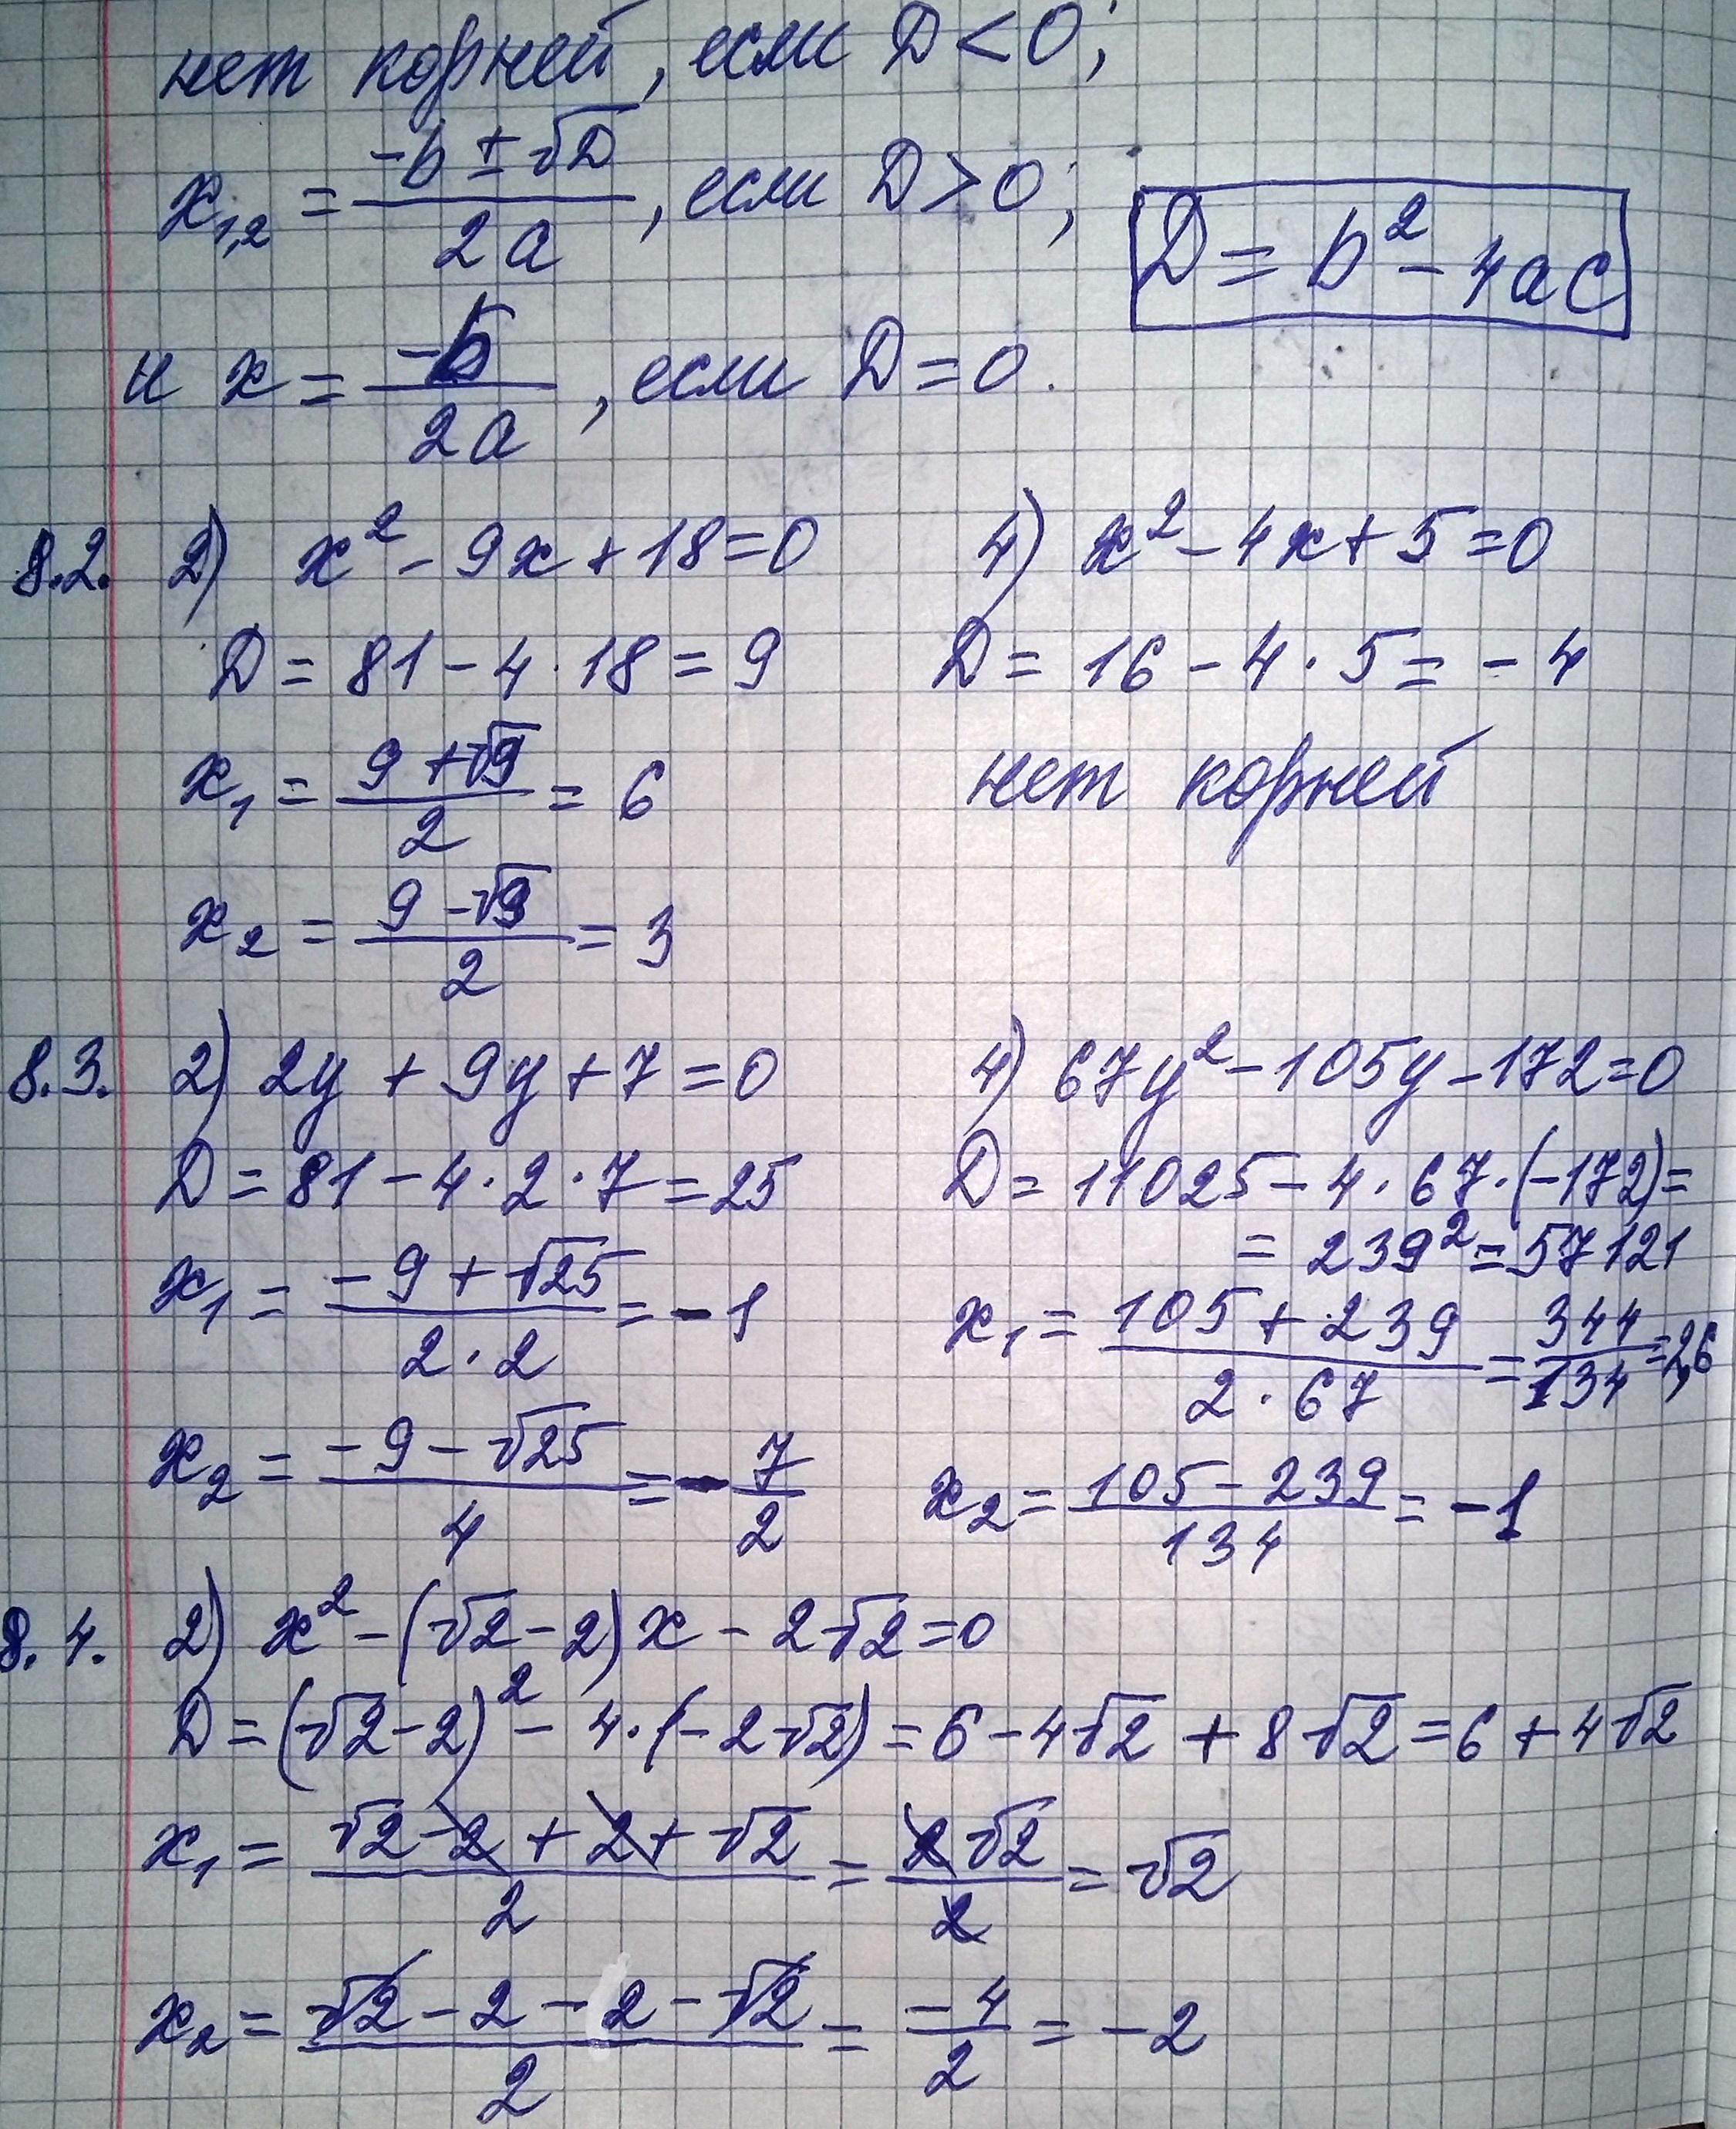 нет корней, если D < 0;
x₁,₂ = (-b ± √D) / 2a, если D > 0;
D = b² - 4ac
и x = -b / 2a, если D = 0.
8.2. 2) x² - 9x + 18 = 0
D = 81 - 4 · 18 = 9
x₁ = (9 + √9) / 2 = 6
x₂ = (9 - √9) / 2 = 3
4) x² - 4x + 5 = 0
D = 16 - 4 · 5 = - 4
нет корней
8.3. 2) 2y + 9y + 7 = 0
D = 81 - 4 · 2 · 7 = 25
x₁ = (-9 + √25) / (2 · 2) = -1
x₂ = (-9 - √25) / 4 = - 7/2
4) 67y² - 105y - 172 = 0
D = 11025 - 4 · 67 · (-172) =
= 239² = 57121
x₁ = (105 + 239) / (2 · 67) = 344/134 = 2,6
x₂ = (105 - 239) / 134 = -1
8.4. 2) x² - (√2 - 2)x - 2√2 = 0
D = (√2 - 2)² - 4 · (-2√2) = 6 - 4√2 + 8√2 = 6 + 4√2
x₁ = (√2 - 2 + 2 + √2) / 2 = 2√2 / 2 = √2
x₂ = (√2 - 2 - 2 - √2) / 2 = -4 / 2 = -2